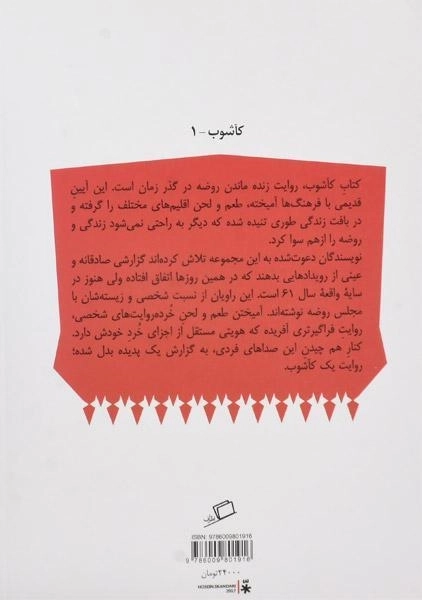 کآشوب - ۱
کتابِ کآشوب، روایت زنده ماندن روضه در گذر زمان است. این آیینِ
قدیمی با فرهنگ‌ها آمیخته، طعم و لحن اقلیم‌های مختلف را گرفته و
در بافت زندگی طوری تنیده شده که دیگر به راحتی نمی‌شود زندگی و
روضه را ازهم سوا کرد.
نویسندگان دعوت‌شده به این مجموعه تلاش کرده‌اند گزارشی صادقانه و
عینی از رویدادهایی بدهند که در همین روزها اتفاق افتاده ولی هنوز در
سایهٔ واقعهٔ سال ۶۱ است. این راویان از نسبت شخصی و زیسته‌شان با
مجلس روضه نوشته‌اند. آمیختن طعم و لحنِ خُرده‌روایت‌های شخصی،
روایتِ فراگیرتری آفریده که هویتی مستقل از اجزای خُردِ خودش دارد.
کنارِ هم چیدن این صداهای فردی، به گزارش یک پدیده بدل شده؛
روایت یک کآشوب.
ISBN: 9786009801916
9 786009 801916
۲۴۰۰۰تومان
HOSEIN.SKANDARI
2017